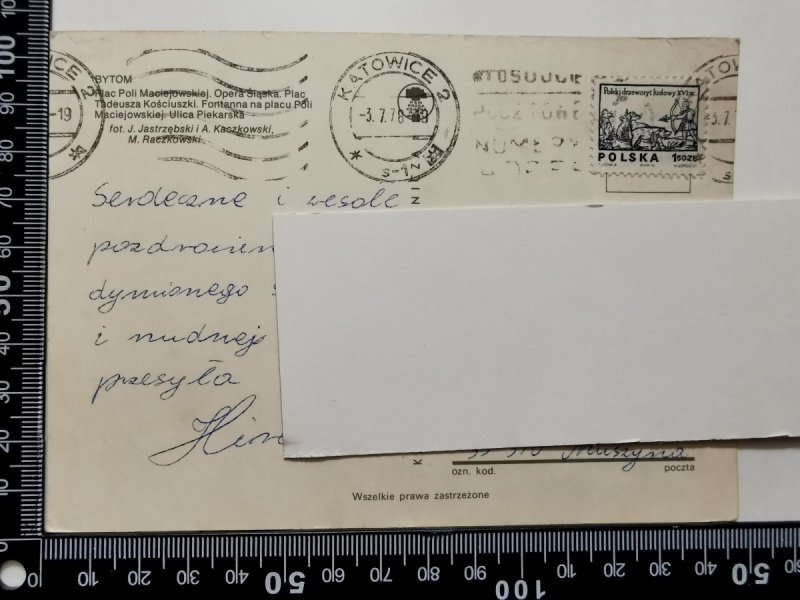 BYTOM
Plac Poli Maciejowskiej. Opera Śląska. Plac
Tadeusza Kościuszki. Fontanna na placu Poli
Maciejowskiej. Ulica Piekarska
fot. J. Jastrzębski i A. Kaczkowski,
M. Raczkowski
KATOWICE 2
-3.7.78
s-1
Polski drzeworyt ludowy XVI w.
POLSKA 1,50 ZŁ
Serdeczne i wesołe
pozdrowien
dymionego
i nudnej
przesyła
Muszyna
ozn. kod.
poczta
Wszelkie prawa zastrzeżone
0 10 20 30 40 50 60 70 80 90 100 10 20 30 40 50